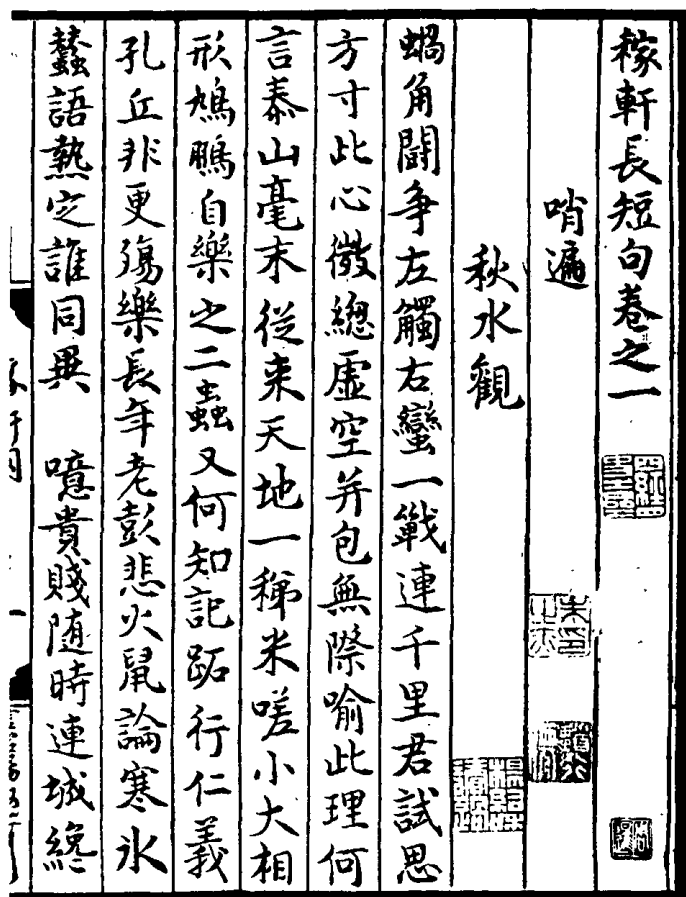 稼軒長短句卷之一
哨遍
秋水觀
蝸角鬪争左觸右蠻一戰連千里君試思
方寸此心微總虛空并包無際喻此理何
言泰山毫末從来天地一稊米嗟小大相
形鳩鵬自樂之二蟲又何知記跖行仁義
孔丘非更殤樂長年老彭悲火鼠論寒氷
蠶語熱定誰同異 噫貴賤随時連城纔